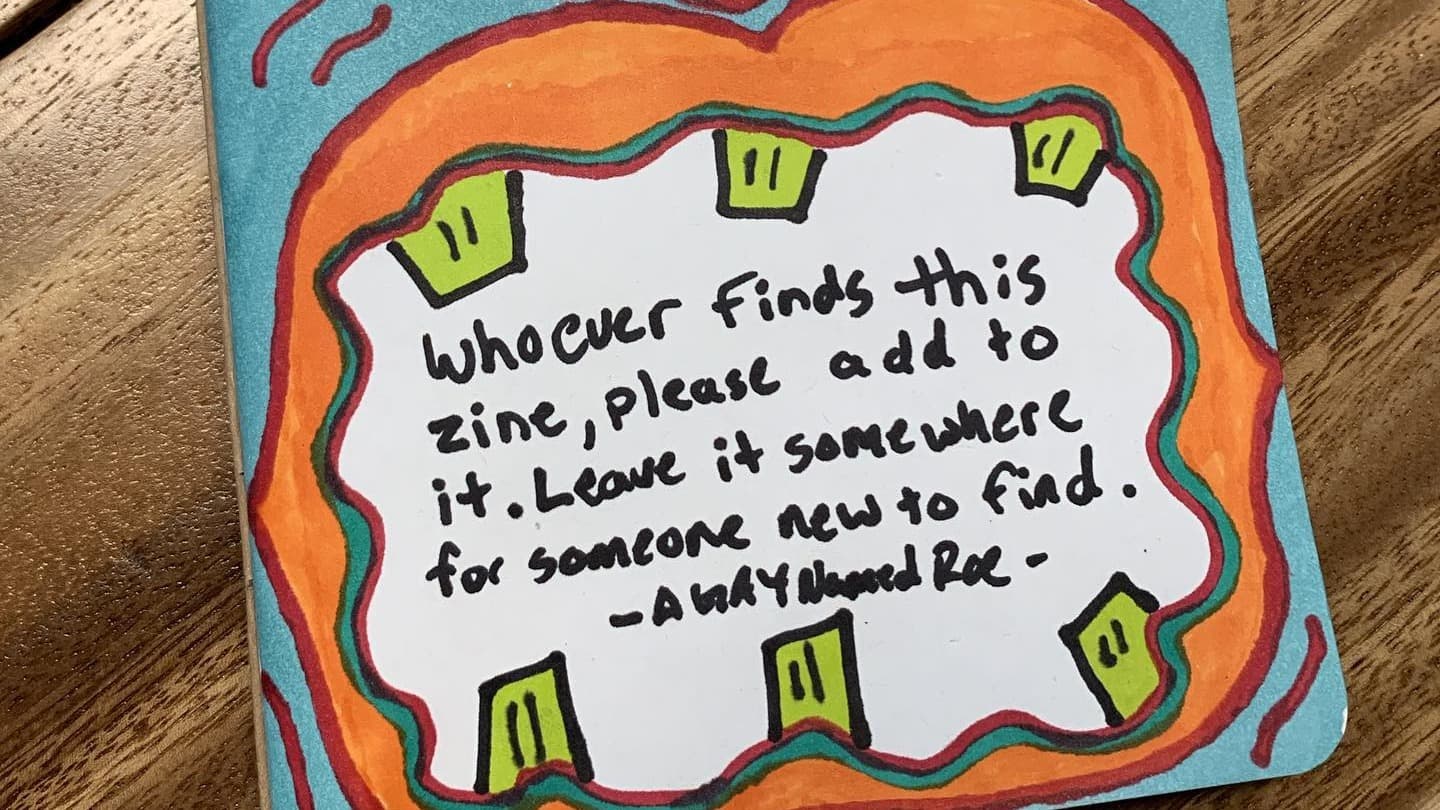 Whoever finds this
zine, please add to
it. Leave it somewhere
for someone new to find.
- A WAY Named Roe -